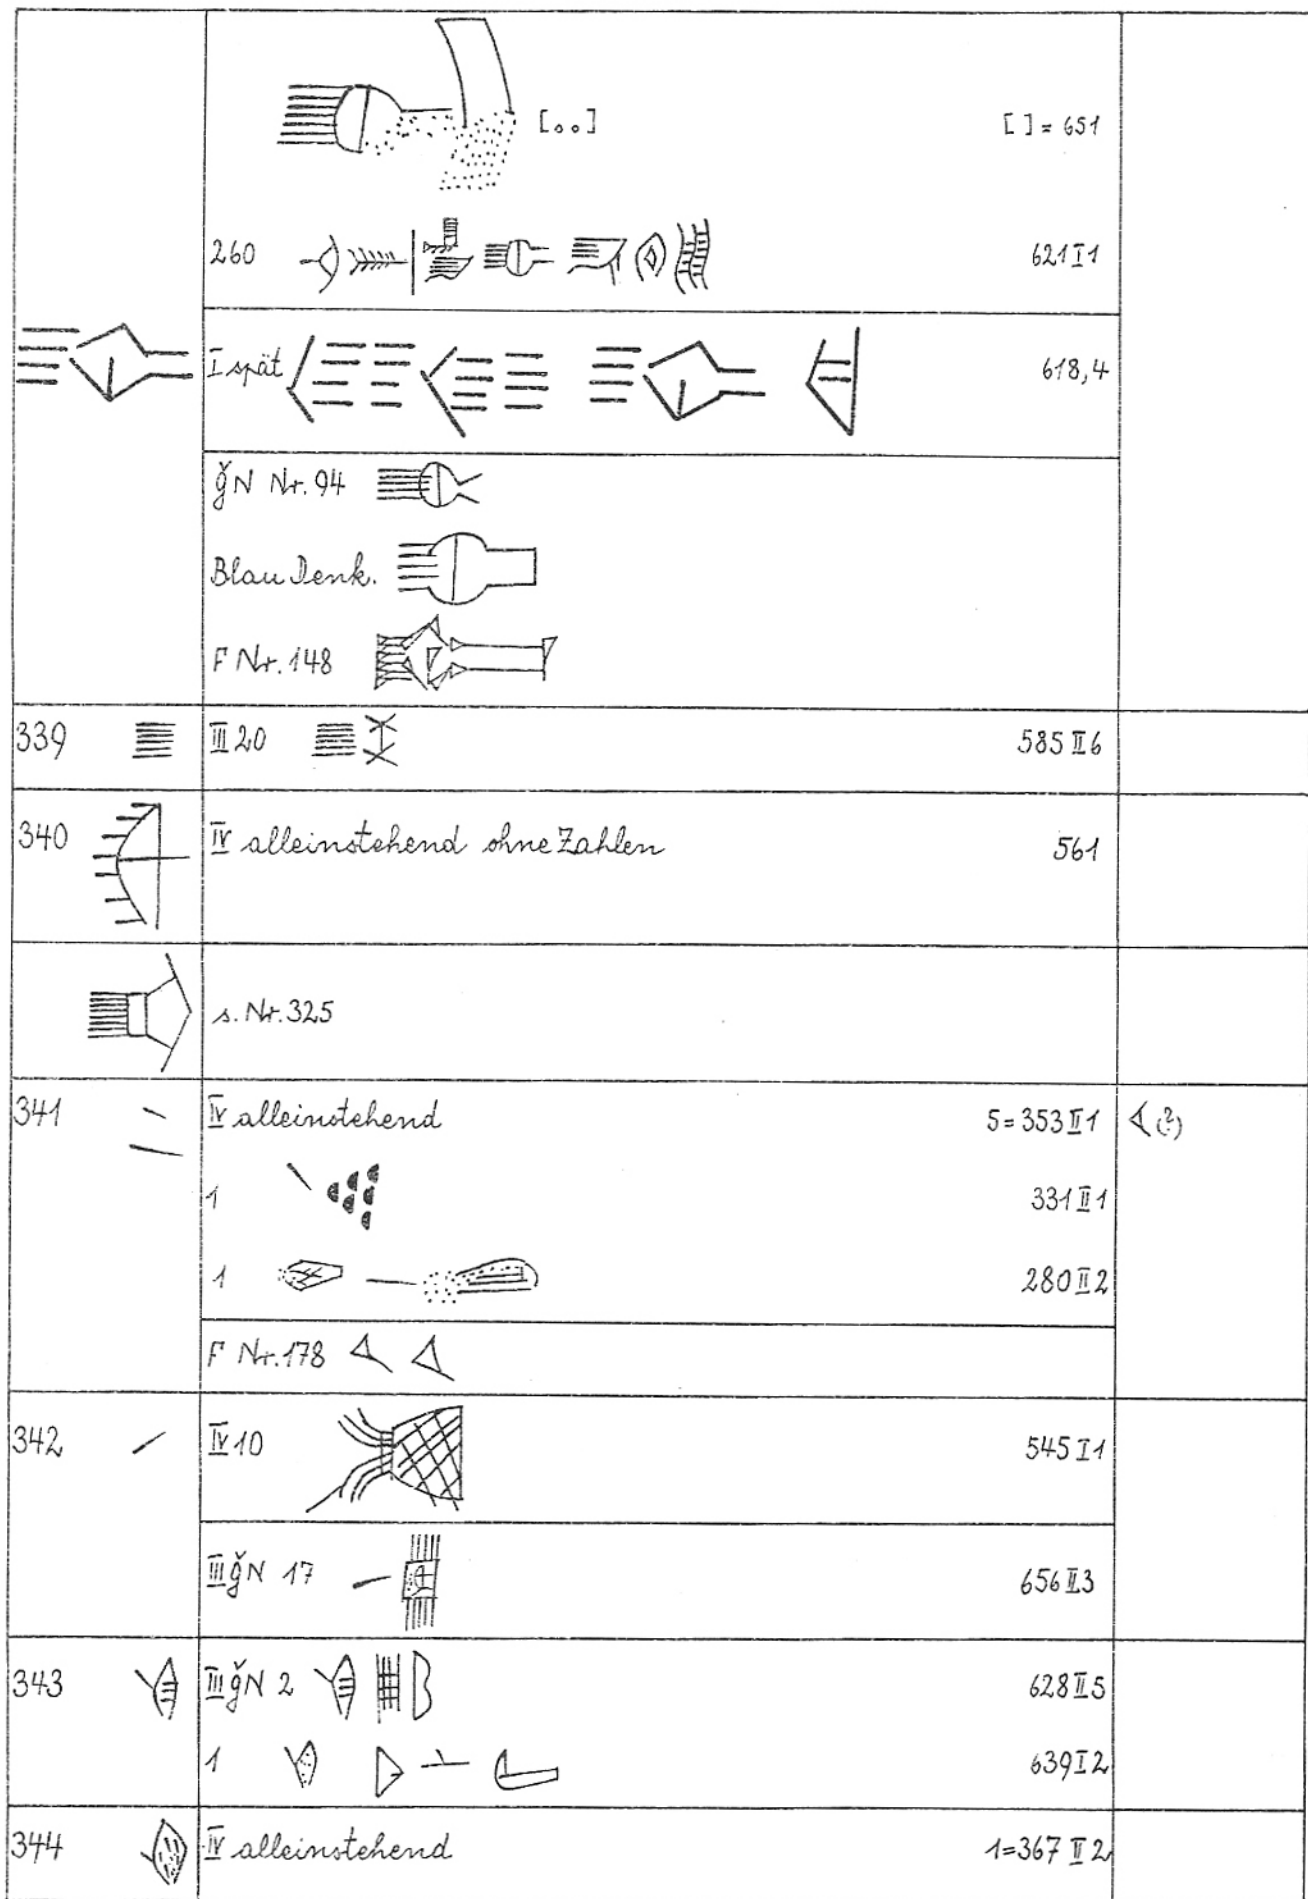 [..] [ ] = 651
260 621 I 1
I spät 618,4
ǧN Nr. 94
Blau Denk.
F Nr. 148
339 III 20 585 II 6
340 IV alleinstehend ohne Zahlen 561
s. Nr. 325
341 IV alleinstehend 5 = 353 II 1 (?)
1 331 II 1
1 280 II 2
F Nr. 178
342 IV 10 545 I 1
III ǧN 17 656 II 3
343 III ǧN 2 628 II 5
1 639 I 2
344 IV alleinstehend 1 = 367 II 2